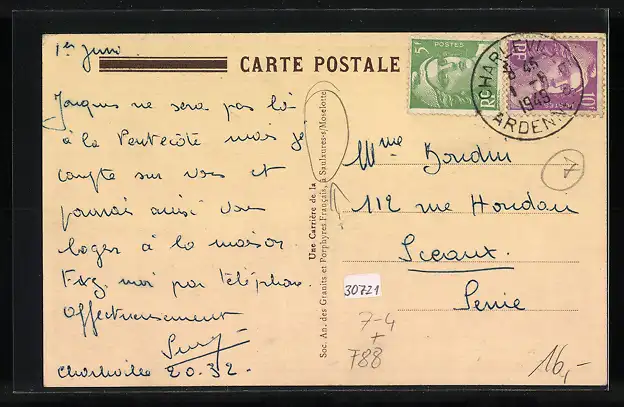 1er Juin
CARTE POSTALE
Jacques ne sera pas là
à la Pentecôte mais je
compte sur vous et
pourrai aussi vous
loger à la maison
moi par téléphone.
Affectueusement
Charleville 20.32
Une Carrière de la
Soc. An. des Granits et Porphyres Français, à Saulxures-s/Moselotte
5F
POSTES
RF
10F
POSTES
CHARLEVILLE
1-6
1949
ARDENNES
Mme Boudin
112 rue Houdan
Sceaux.
Seine
30721
7-4
+
F88
16,-